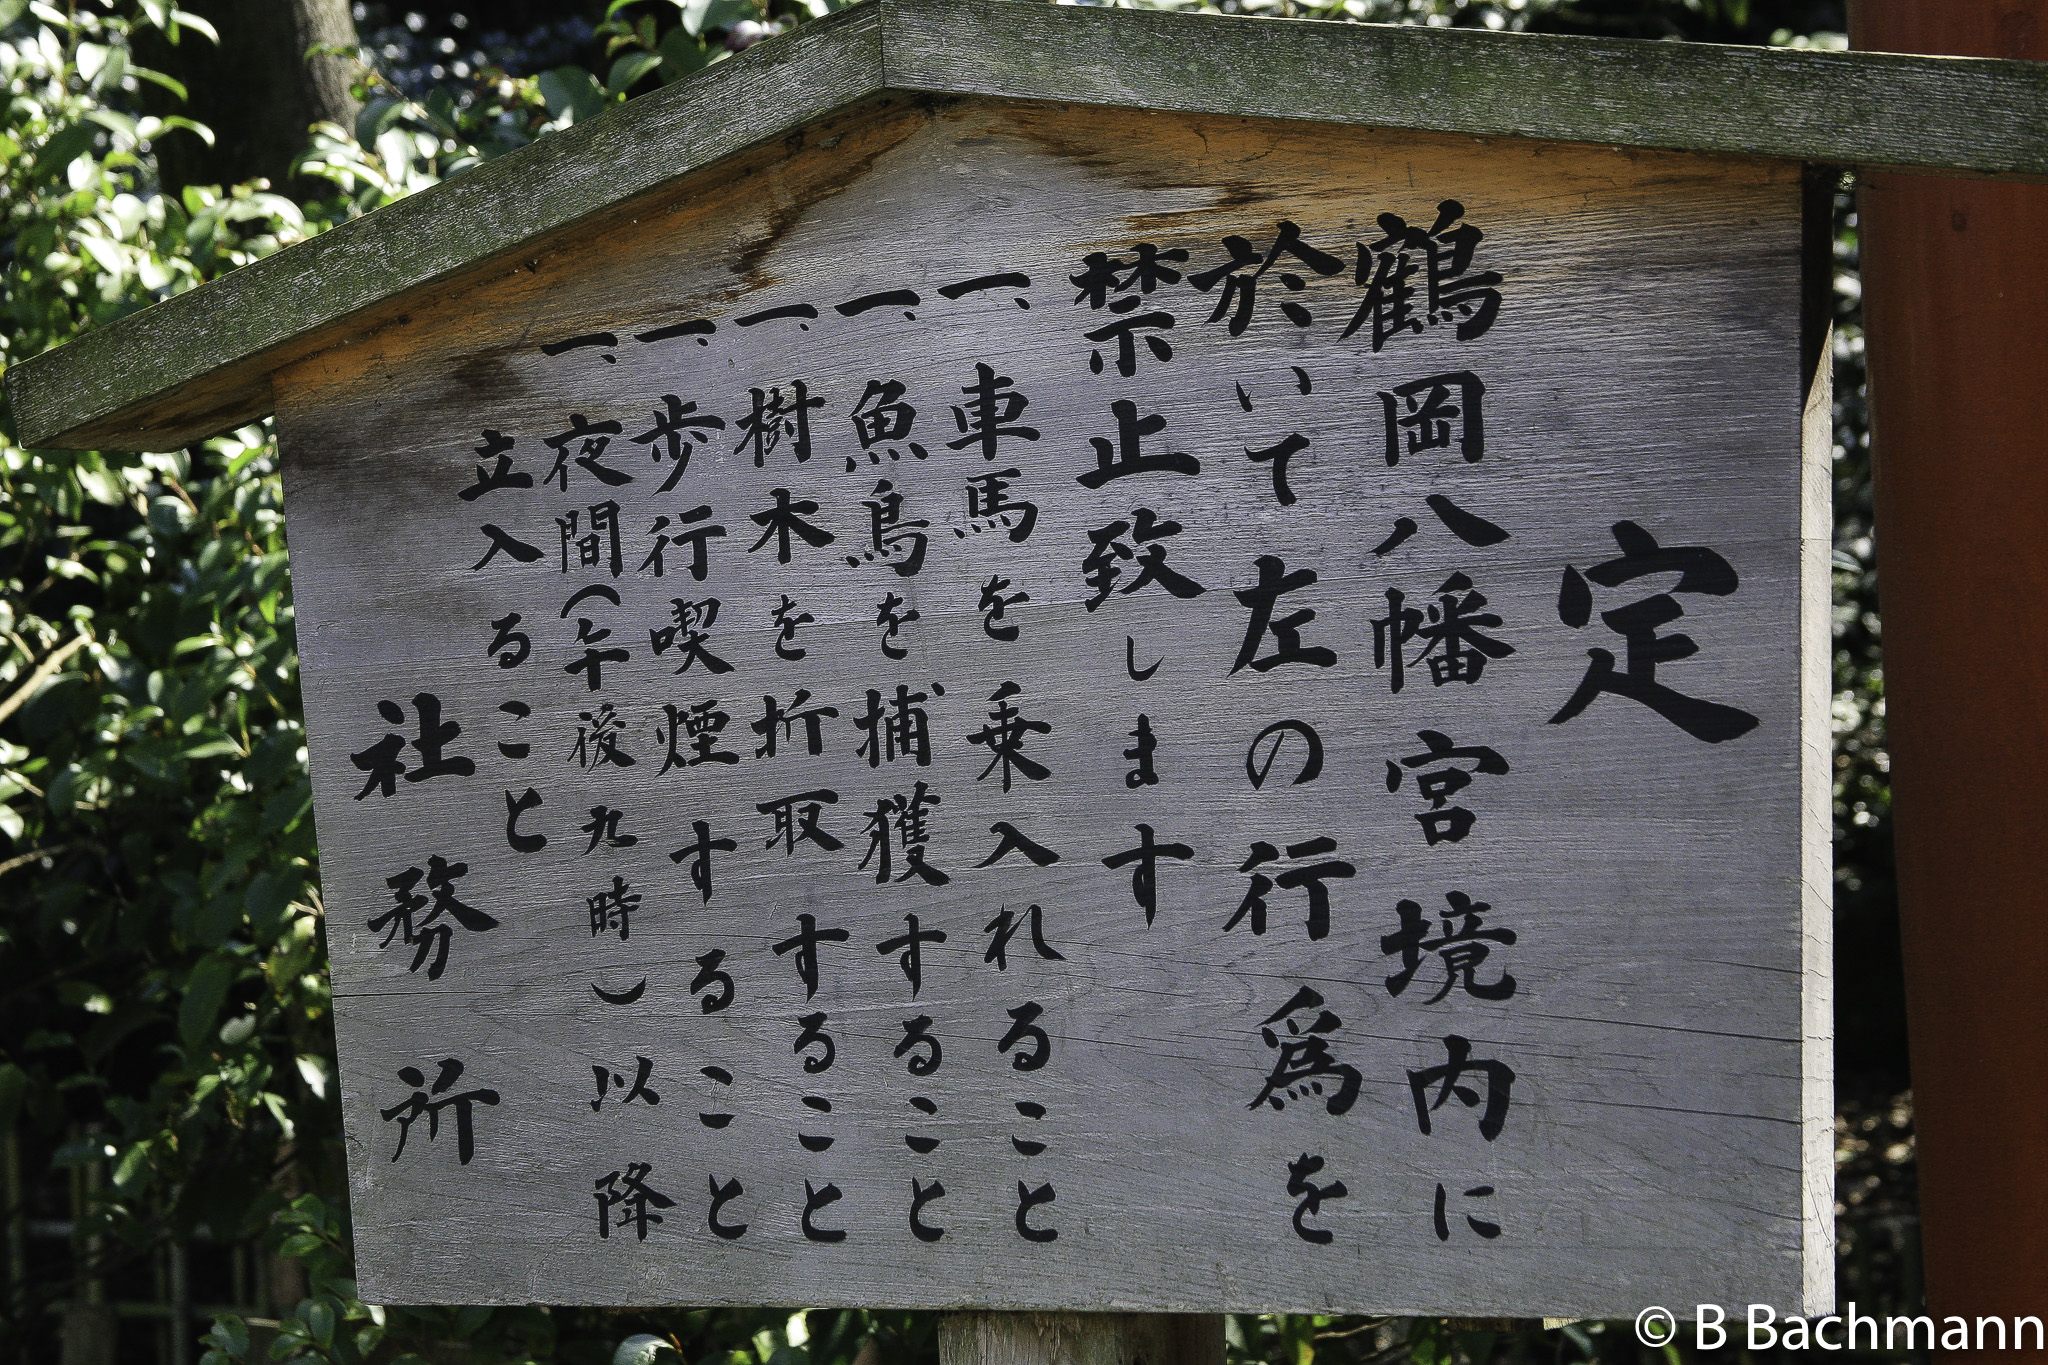 定
鶴岡八幡宮境内に
於いて左の行為を
禁止致します
一、車馬を乗入れること
一、魚鳥を捕獲すること
一、樹木を折取すること
一、歩行喫煙すること
一、夜間(午後九時)以降
立入ること
社務所
© B Bachmann